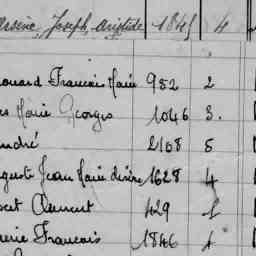 Arsène, Joseph, Aristide 1845 4
douard Francois Marie 952 2
es Marie Georges 1046 3.
ndré 2108 5
uguste Jean Marie désiré 1628 4
bert Clément 429 1
erie Francois 1846 4